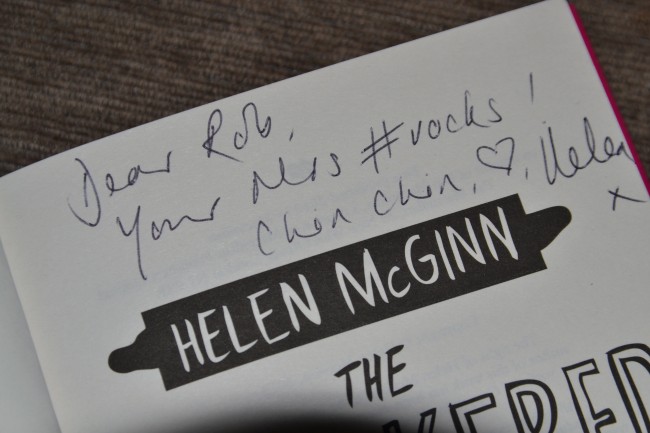 Dear Rob,
Your Mrs #rocks!
Chin Chin, ♡, Helen
x
HELEN McGINN
THE